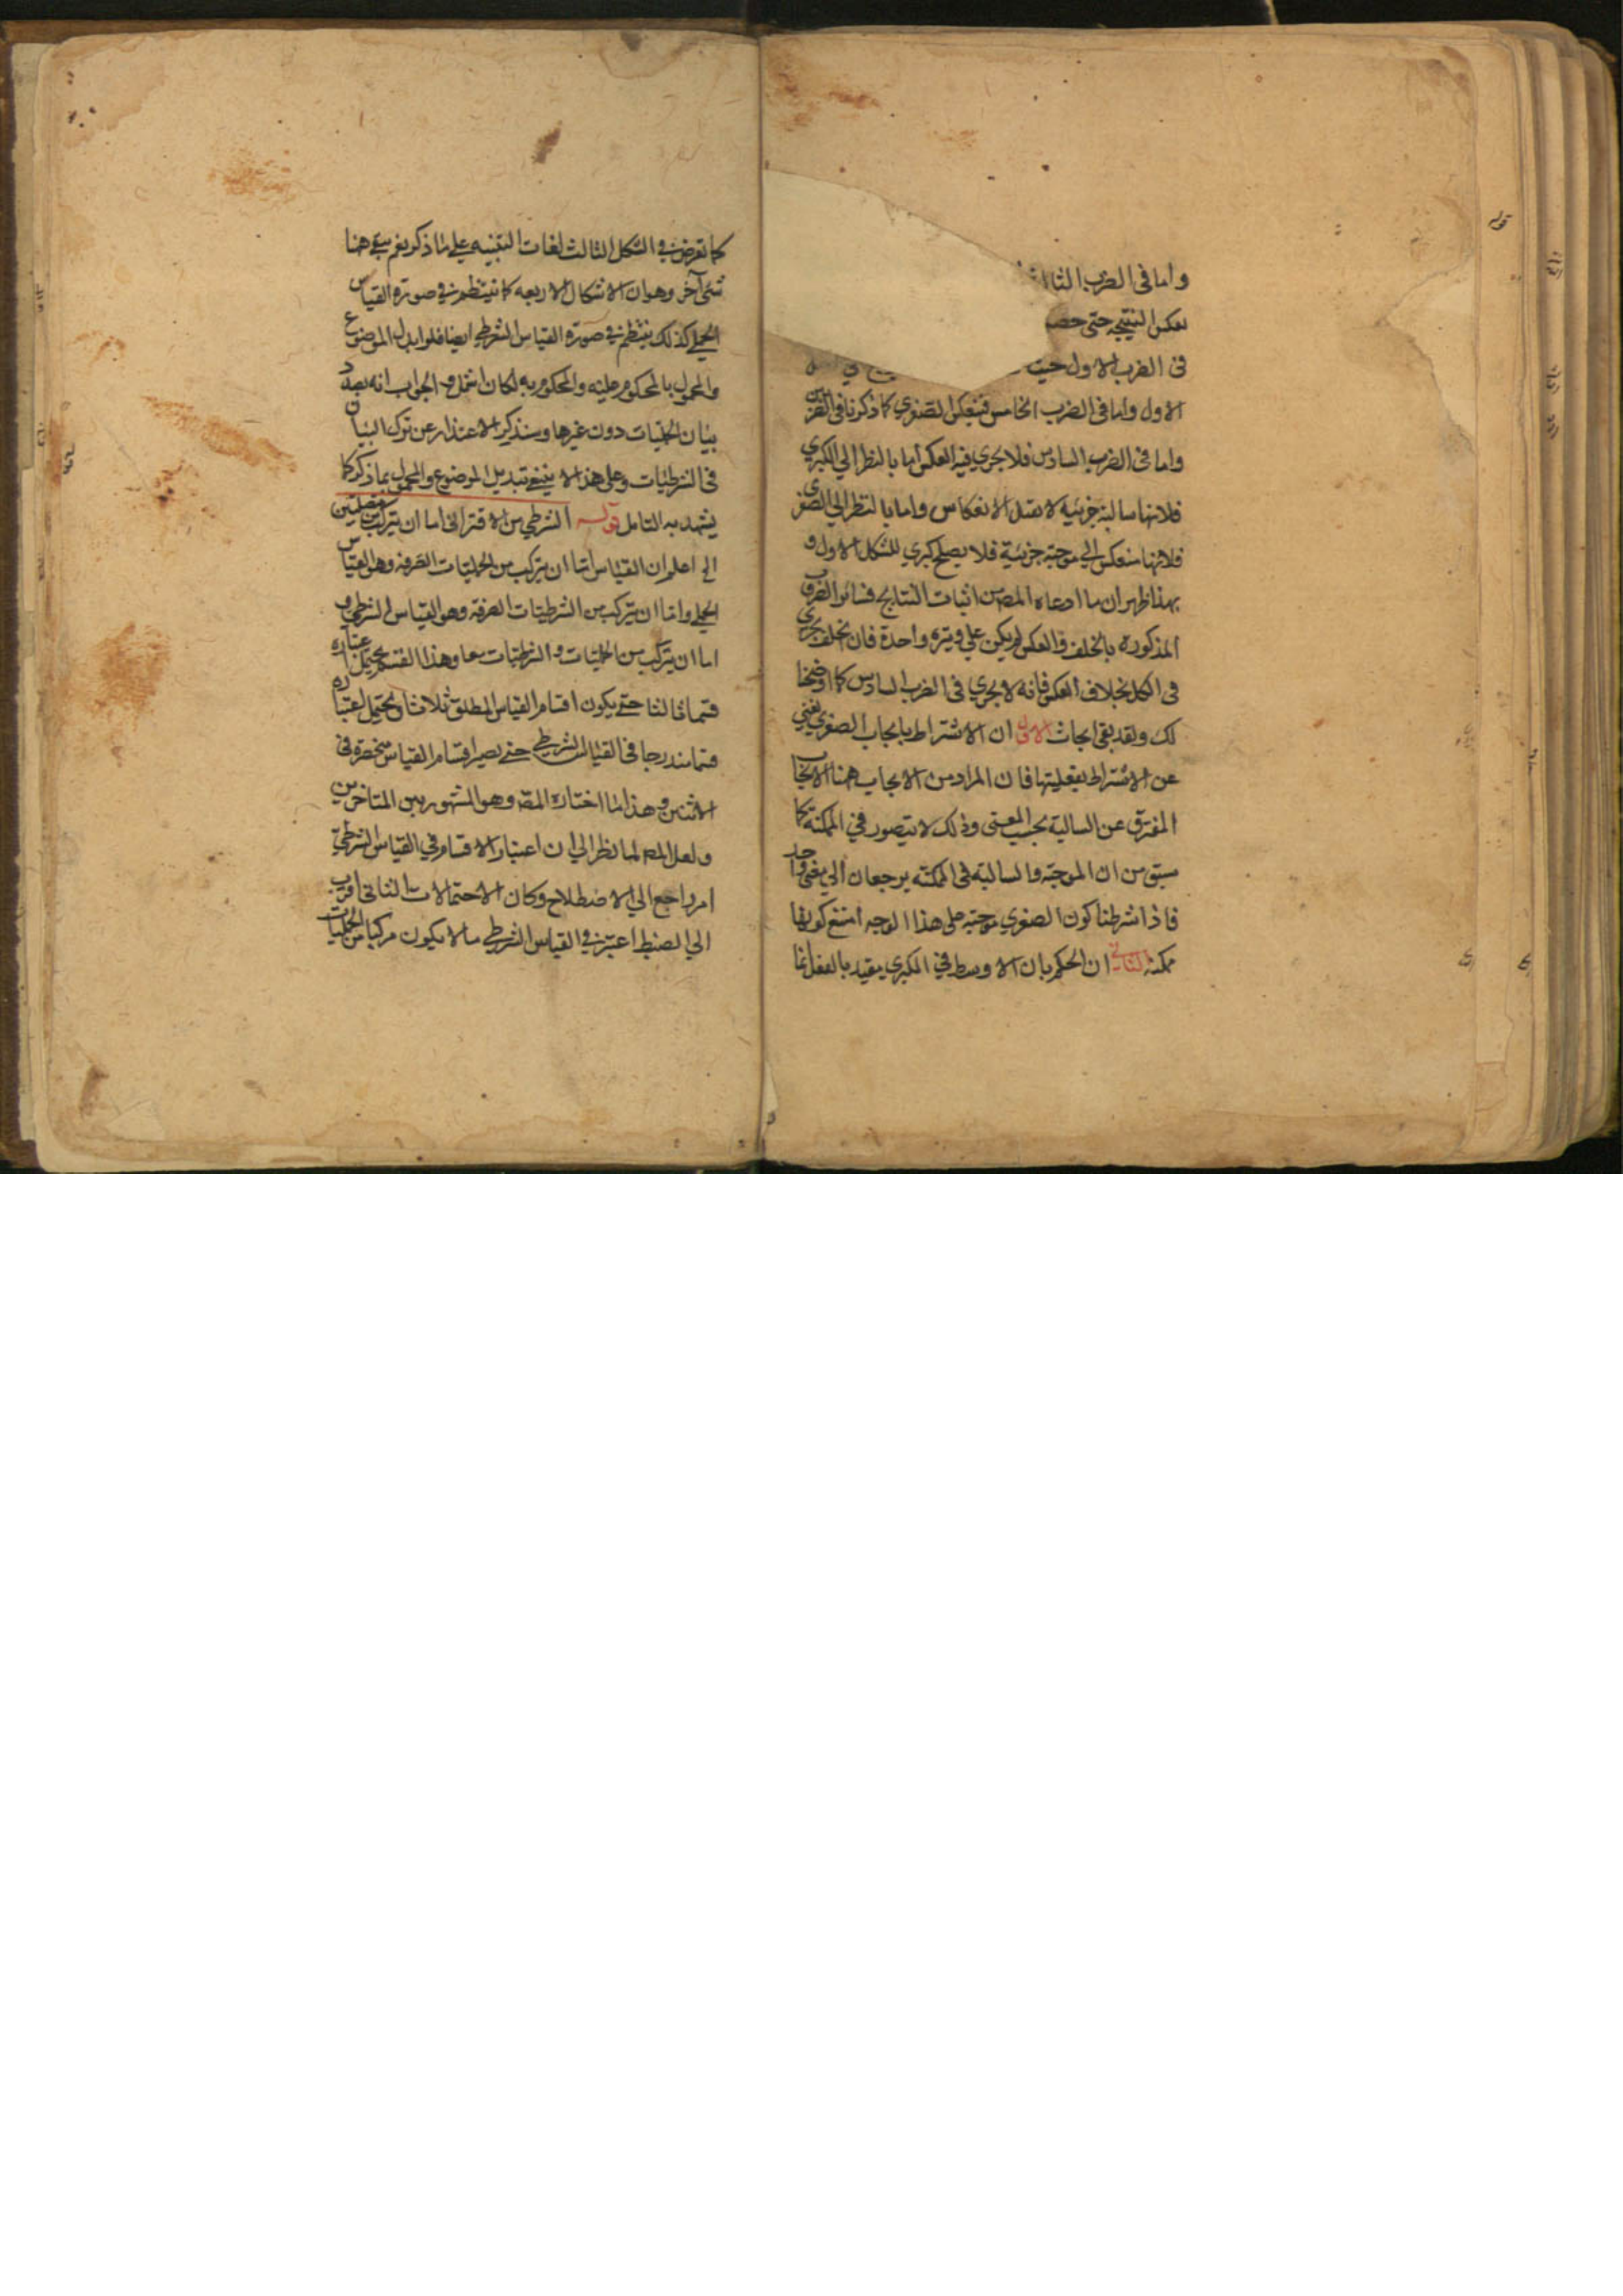 واما فى الضرب الثا
بعكس النتيجه حتى حصـ
فى الضرب الاول حيث
الاول واما فى الضرب الخامس فبعكس الصغري كما ذكرنا فى
واما فى الضرب السادس فلا يجري فيه العكس اما بالنظر الي الكبري
فلانها سالبة جزئيه لا تقبل الانعكاس واما بالنظر الي الصغرى
فلانها تنعكس الي موجبة جزئية فلا يصلح كبري للشكل الاول و
بهذا ظهر ان ما ادعاه المصـ من اثبات النتايج فى سائر الضروب
المذكوره بالخلف والعكس لم يكن علي وتيره واحدة فان الخلف يجري
فى الكل بخلاف العكس فانه لا يجري فى الضرب السادس كما اوضحنا
لك ولقد بقى ابحاث الاول ان الاشتراط بايجاب الصغري يغني
عن الاشتراط بفعليتها فان المراد من الايجاب ههنا الايجاب
المفترق عن السالبة بحسب المعنى وذلك لا يتصور في الممكنة كما
سبق من ان الموجبة والسالبة فى الممكنه يرجعان الي معنى واحد
فاذا شرطنا كون الصغري موجبة على هذا الوجه امتنع كونها
ممكنة الثاني ان الحكم بان الاوسط في الكبري مقيد بالفعل انما
كما تعرض في الشكل الثالث لفات التنبيه علي ما ذكر نعم بقي هنا
شئ آخر وهو ان الاشكال الاربعه كما تنتظم في صورة القياس
الحملي كذلك ينتظم في صورة القياس الشرطي ايضا فلو ابدل الموضوع
والمحمول بالمحكوم عليه والمحكوم به لكان اشمل والجواب انه بصدد
بيان الحمليات دون غيرها وسنذكر الاعتذار عن ترك البيان
فى الشرطيات وعلى هذا لا ينبغي تبديل الموضوع والمحمول بما ذكر كما
يشهد به التامل قولـه الشرطي من الاقترانى اما ان يتركب من متصلتين
الخ اعلم ان القياس اما ان يتركب من الحمليات الصرفه وهو القياس
الحملي واما ان يتركب من الشرطيات الصرفة وهو القياس الشرطي و
اما ان يتركب من الحمليات والشرطيات معا وهذا القسم يحتمل اعتباره
قسما ثالثا حتى يكون اقسام القياس المطلق ثلاثا ويحتمل اعتباره
قسما مندرجا فى القياس الشرطي حتى يصير اقسام القياس منحصرة فى
الاثنين وهذا ما اختاره المصـ وهو المشهور بين المتاخرين
ولعل المصـ لما نظر الي ان اعتبار الاقسام في القياس الشرطي
امر راجع الي الاصطلاح وكان الاحتمالات الثانى اقرب
الي الضبط اعتبر في القياس الشرطي ما لا يكون مركبا من الحمليات